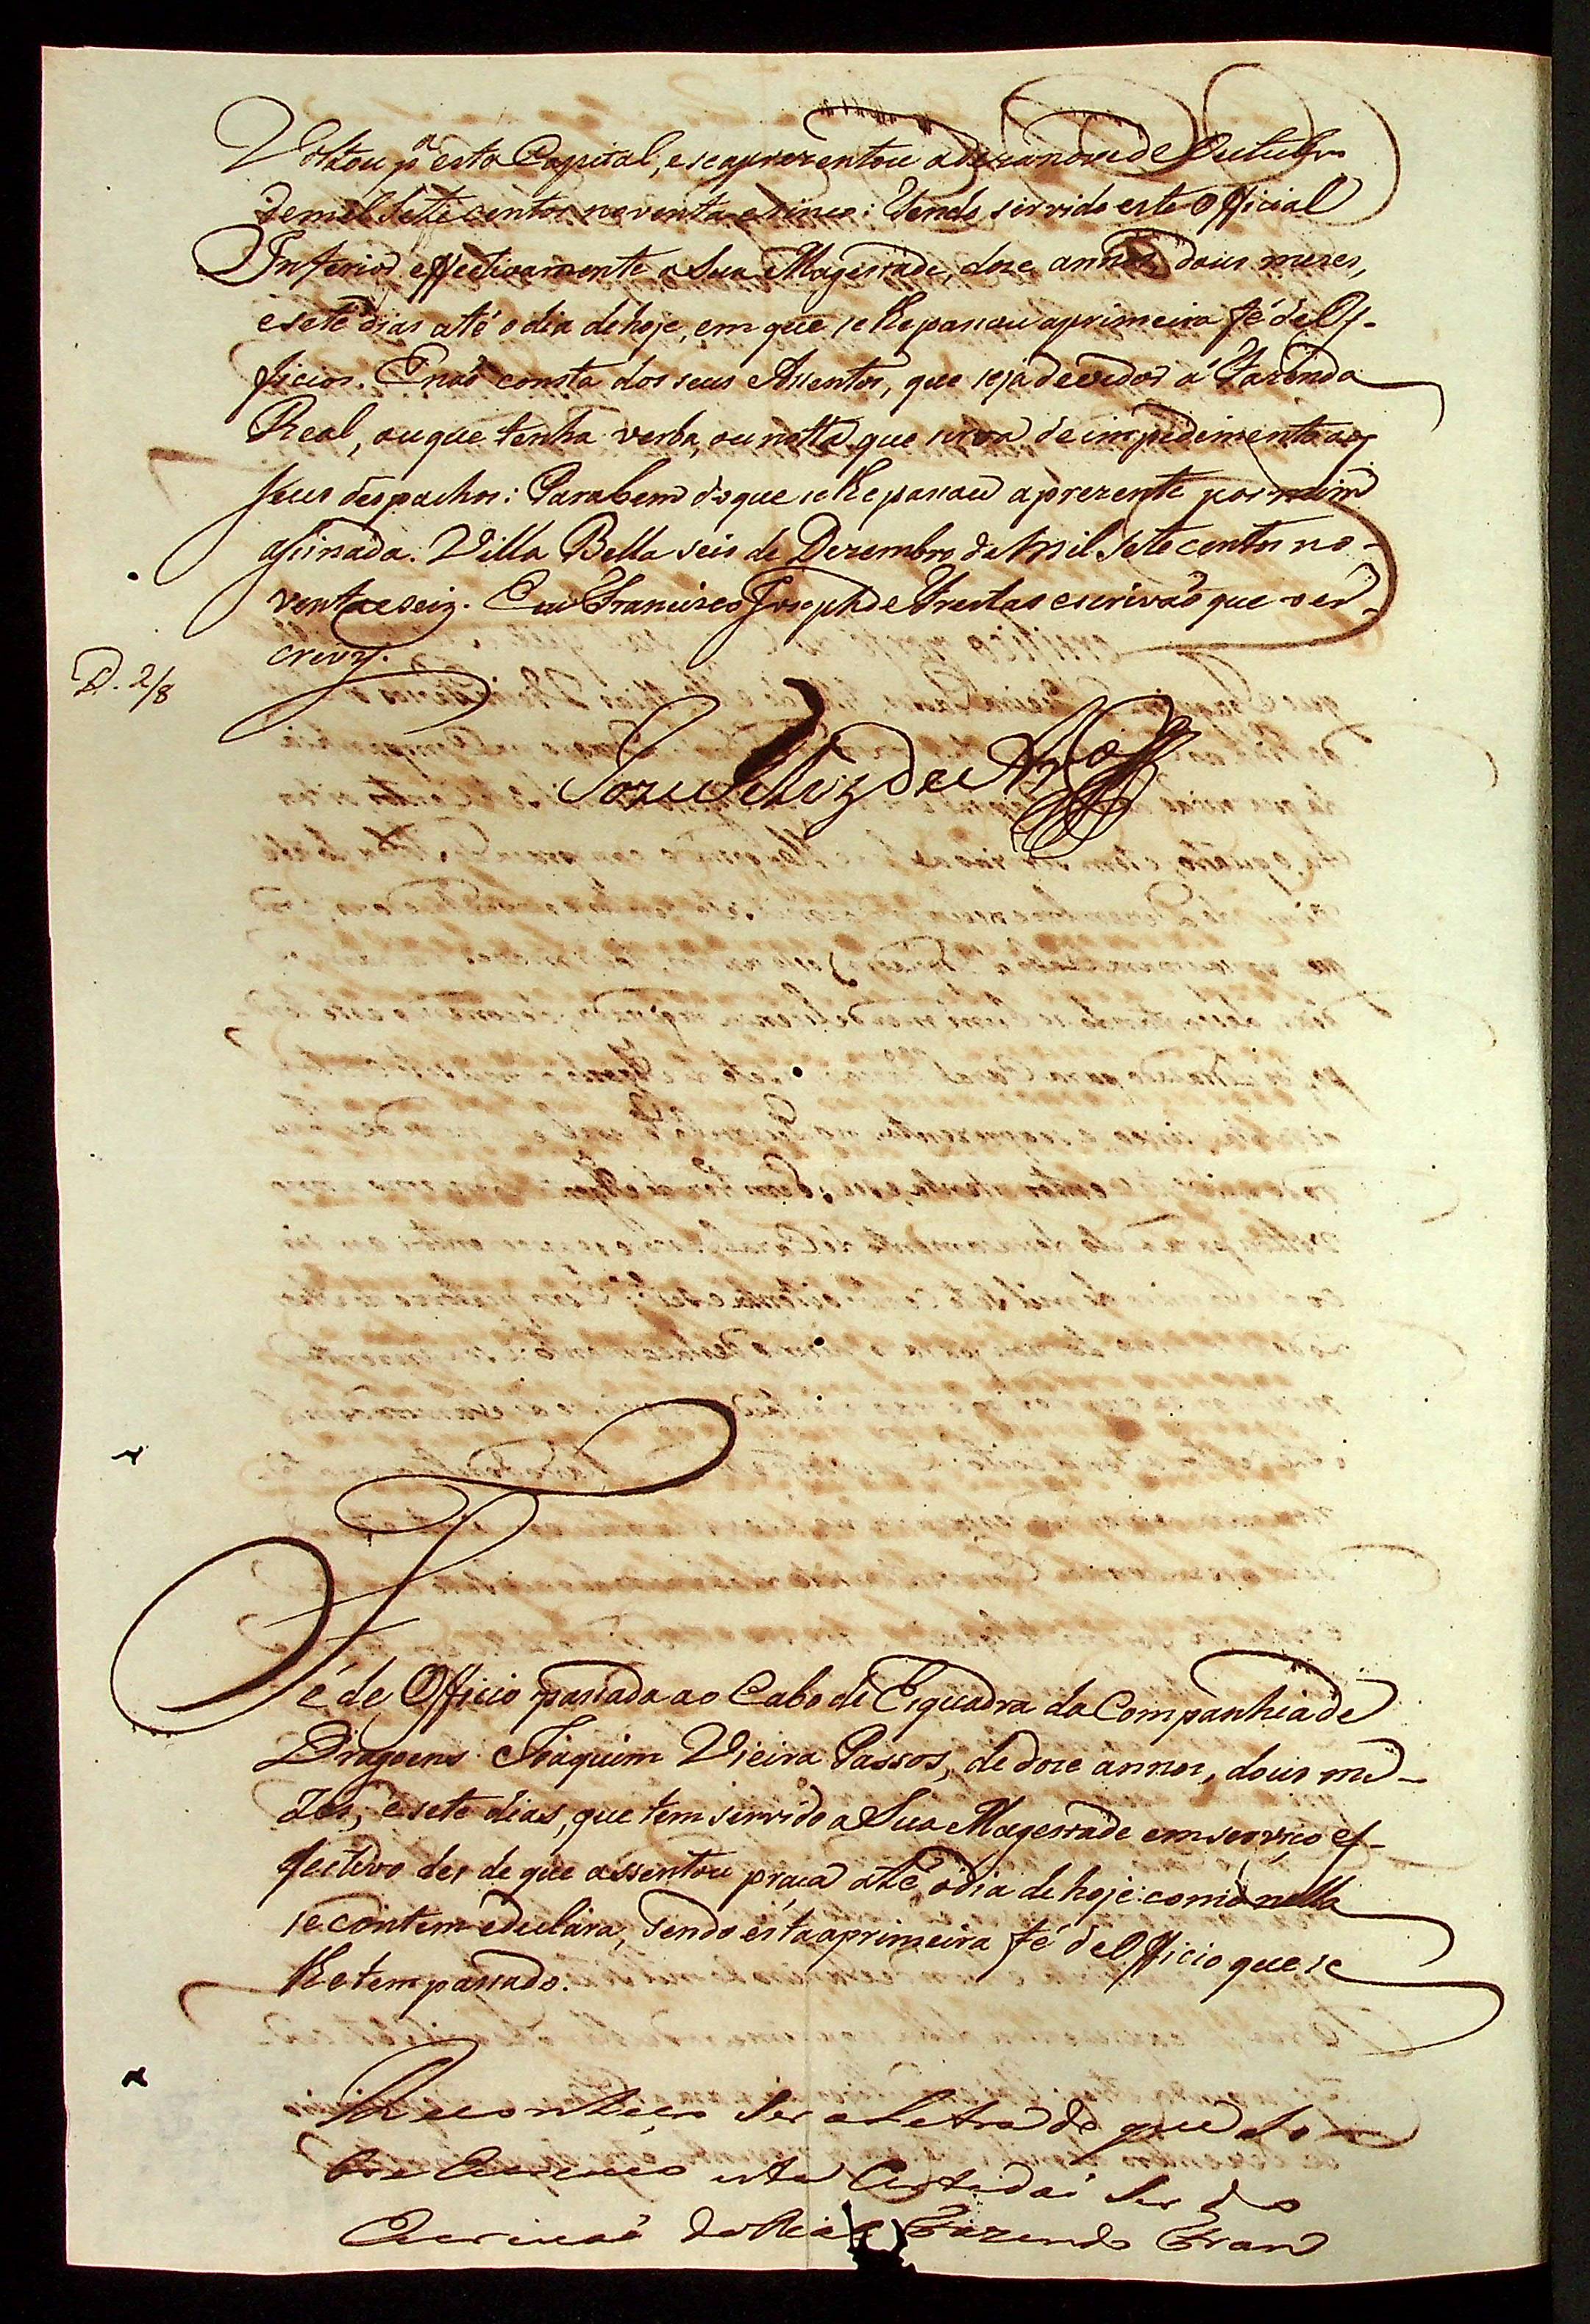 Voltou pª esta Capital, e se aprezentou a dezanove de Outubro
de mil Sette centos noventa e sinco: Tendo sirvido este Official
Inferior effectivamente a Sua Magestade, doze annos, dous mezes,
e sete dias até o dia de hoje, em que se lhe passou a primeira fé de Of-
ficios. E naõ consta dos seus Assentos, que seja devedor á Fazenda
Real, ou que tenha verba, ou notta que sirva de impedimento aos
seus despachos: Para bem do que se lhe passou a prezente por mim
assinada. Villa Bella seis de Dezembro de mil sete centos no-
venta e seis. Eu Francisco Joseph de Freitas escrivaõ que o es-
crevy.
D. 2/8
Fé de Officio passada ao Cabo de Esquadra da Companhia de
Dragoens Joaquim Vieira Passos, de doze annos, dous me-
zes, e sete dias, que tem servido a Sua Magestade em serviço ef-
fectivo des de que assentou praça até o dia de hoje: como nella
se contem e declara, sendo esta a primeira fé de Officio que se
lhe tem passado.
Reconheço Ser a Letra de que So-
bre escreueo esta Certidaõ Ser do
Escrivaõ da Real Fazenda Fran